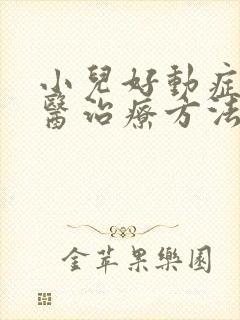 小兒好動症
醫治療方法
金苹果樂園